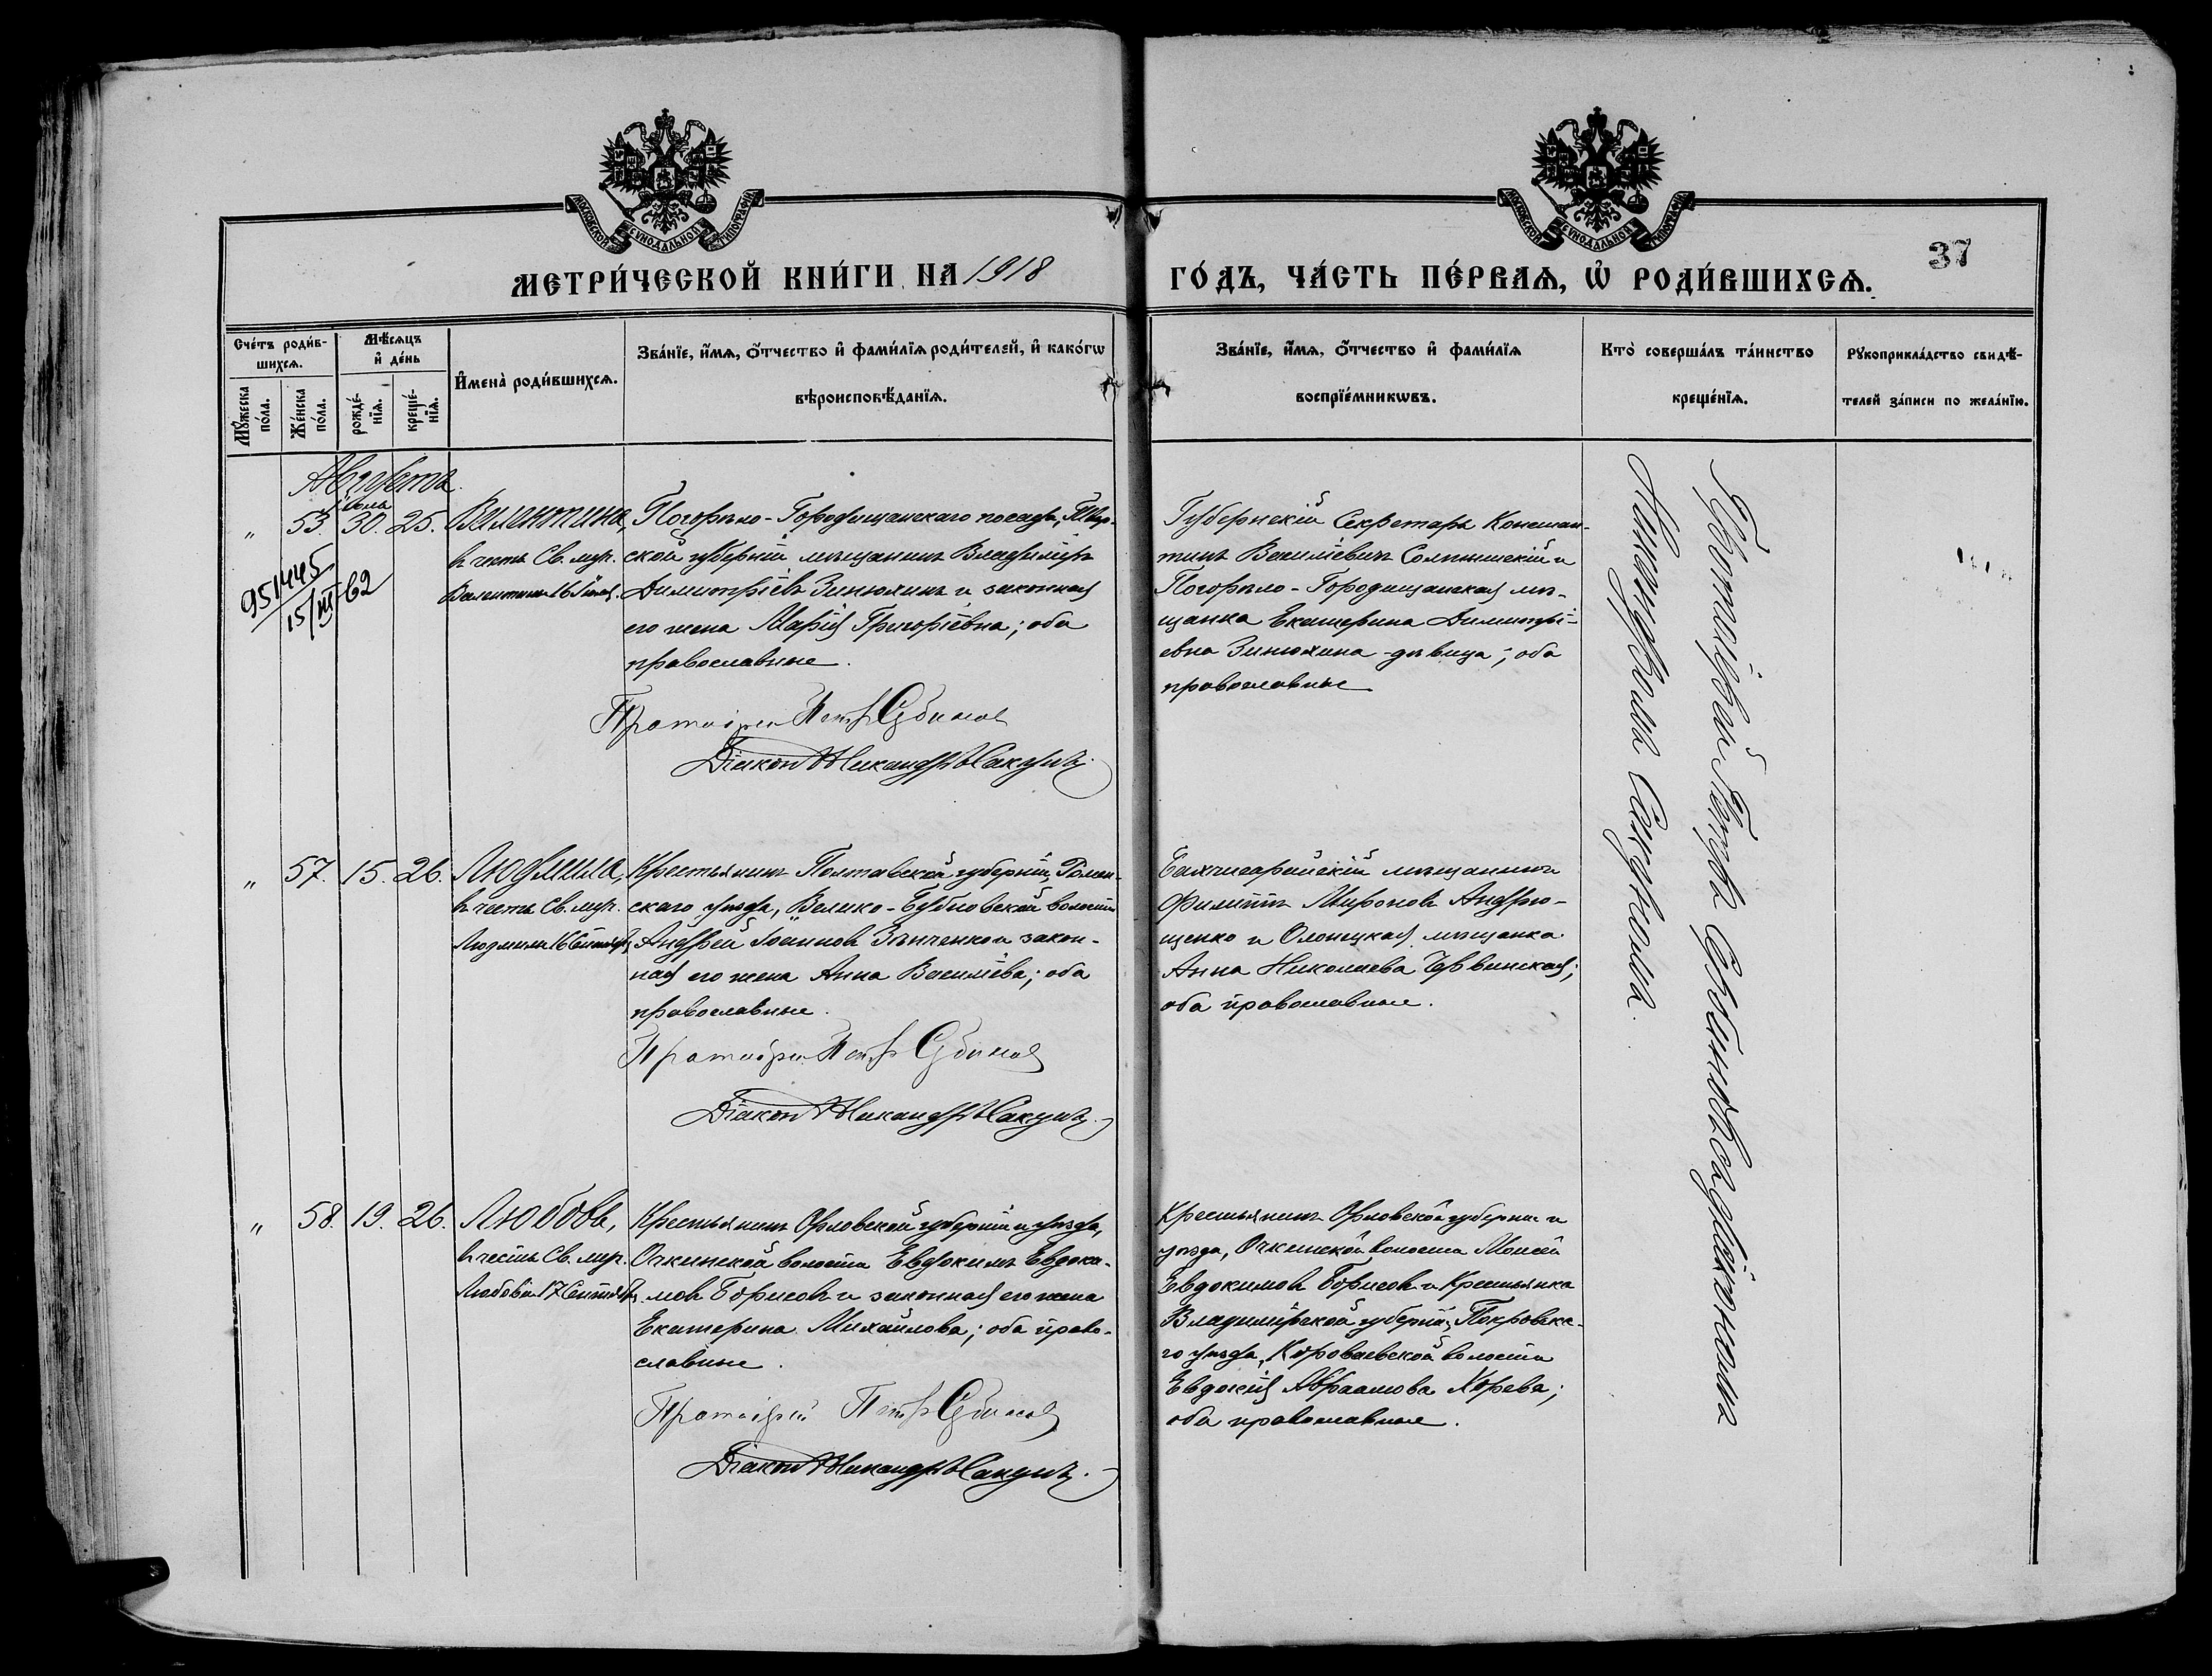 МОСКОВСКОЙ СѴНОДАЛЬНОЙ ТИПОГРАФІИ
МОСКОВСКОЙ СѴНОДАЛЬНОЙ ТИПОГРАФІИ
37
МЕТРИ́ЧЕСКОЙ КНИ́ГИ НА 1918
ГО́ДЪ, ЧА́СТЬ ПЕ́РВАѦ, Ѡ҆ РОДИ́ВШИХСѦ.
Сче́тъ роди́в-
шихсѧ.
Мꙋ́жеска по́ла.
Же́нска по́ла.
Мѣ́сѧцъ
и҆ де́нь
рожде́-
нїѧ.
креще́-
нїѧ.
И҆мена̀ роди́вшихсѧ.
Зва́нїе, и҆́мѧ, ѻ҆́тчество и҆ фами́лїѧ роди́телей, и҆ како́гѡ
вѣроисповѣ́данїѧ.
Зва́нїе, и҆́мѧ, ѻ҆́тчество и҆ фами́лїѧ
воспрїе́мникѡвъ.
Кто̀ соверша́лъ та́инство
креще́нїѧ.
Рꙋкоприкла́дство свидѣ́-
телей за́писи по жела́нїю.
Августа
Іюля
" 53. 30. 25. Валентина,
в честь Св. муч.
Валентины 16 Іюля.
951445
15/III 62
Погорѣло-Городищенскаго посада, Твер-
ской губерніи мѣщанинъ Владиміръ
Димитріевъ Зинюхинъ и законная
его жена Марія Григоріевна; оба
православные.
Протоіерей Петръ Сербиновъ
Діаконъ Никандръ Сакунъ.
Губернскій Секретарь Констан-
тинъ Василіевичъ Солнышскій и
Погорѣло-Городищенская мѣ-
щанка Екатерина Димитрі-
евна Зинюхина - дѣвица; оба
православные
" 57. 15. 26. Людмила,
в честь Св. муч.
Людмилы 16 Сентября
Крестьянинъ Полтавской губерніи, Ромен-
скаго уѣзда, Велико-Бубновской волости
Андрей Іоанновъ Зѣнченко и закон-
ная его жена Анна Василіева; оба
православные.
Протоіерей Петръ Сербиновъ
Діаконъ Никандръ Сакунъ.
Бахчисарайскій мѣщанинъ
Филиппъ Мироновъ Андрю-
щенко и Олонецкая мѣщанка
Анна Николаева Чувинская;
оба православные.
" 58. 19. 26. Любовь,
в честь Св. муч.
Любови 17 Сентября
Крестьянинъ Орловской губерніи и уѣзда,
Очкинской волости Евдокимъ Евдоки-
мовъ Борисовъ и законная его жена
Екатерина Михайлова; оба право-
славные.
Протоіерей Петръ Сербиновъ
Діаконъ Никандръ Сакунъ.
Крестьянинъ Орловской губерніи и
уѣзда, Очкинской волости Моисей
Евдокимовъ Борисовъ и Крестьянка
Владимірской губерніи, Покровска-
го уѣзда, Короваевской волости
Евдокія Авраамова Жорева;
оба православные.
Протоіерей Петръ Сербиновъ съ діакономъ
Никандромъ Сакуномъ.